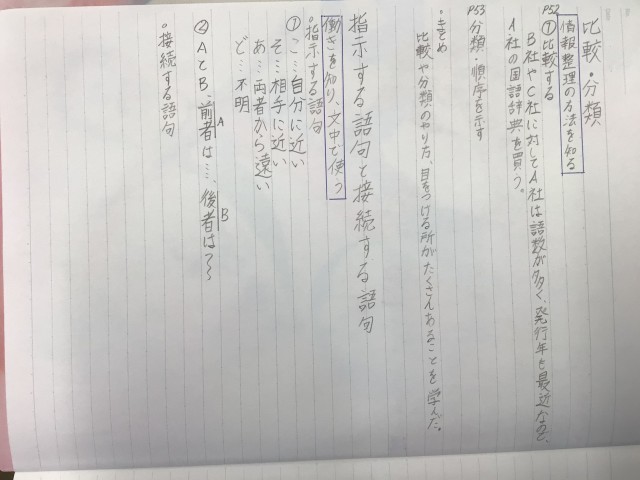 比較・分類
情報整理の方法を知る
P52
①比較する
B社やC社に対してA社は語数が多く、発行年も最近なので、
A社の国語辞典を買う。
P53
分類・順序を示す
・まとめ
比較や分類のやり方、目をつける所がたくさんあることを学んだ。
指示する語句と接続する語句
働きを知り、文中で使う
・指示する語句
①こ…自分に近い
そ…相手に近い
あ…両者から遠い
ど…不明
②AとB、前者は……、後者は〜〜
A
B
・接続する語句